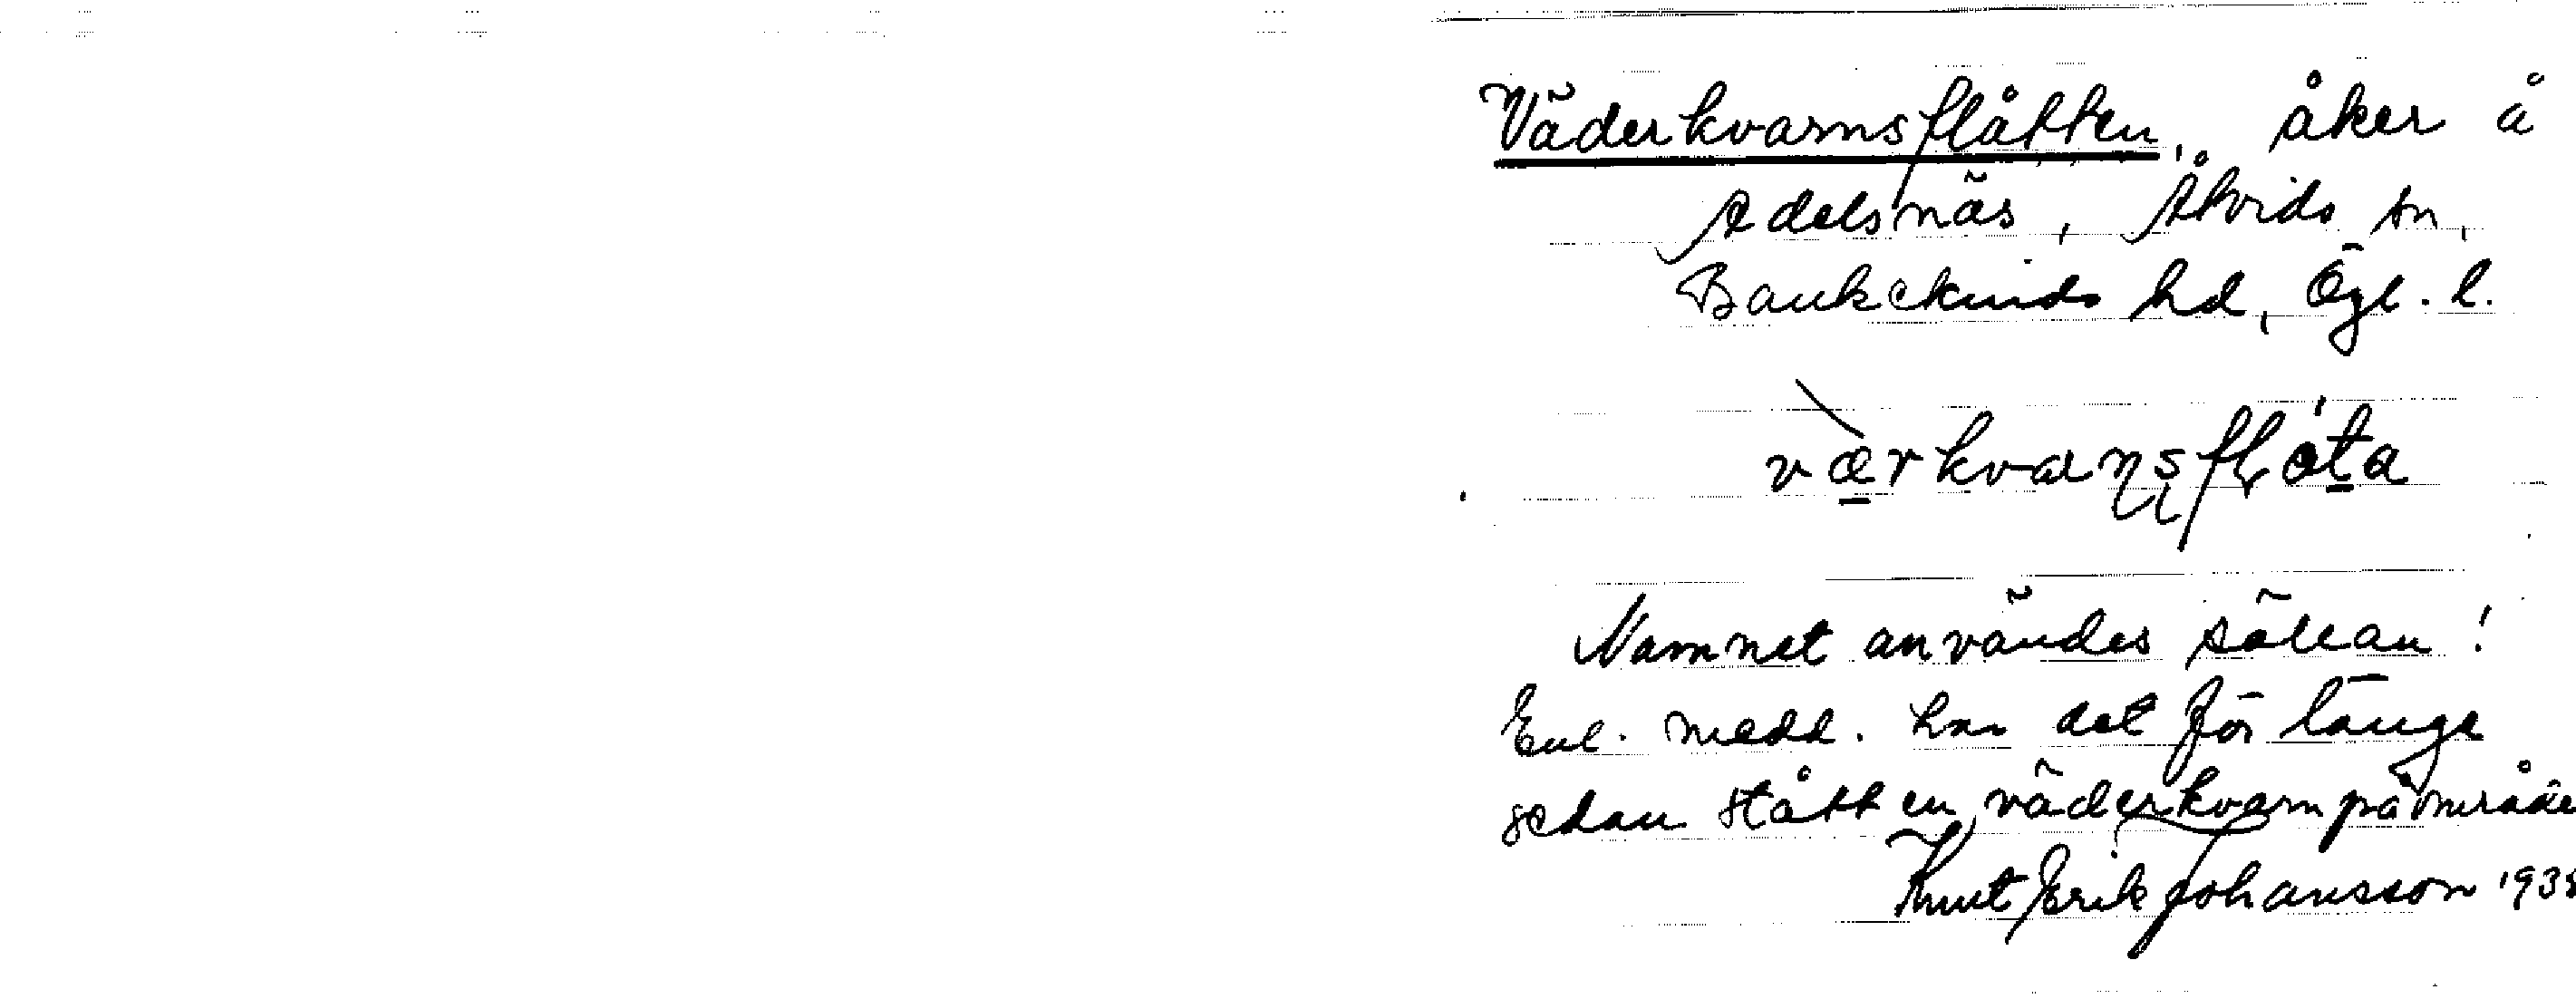 Väderkvarnsflåtten, åker å
Adelsnäs, Åtvids sn,
Bankekinds hd, Ögl. l.
værkvaɳʂflåta
Namnet användes sällan!
Enl. medd. har det för länge
sedan stått en väderkvarn på område
Knut Erik Johansson